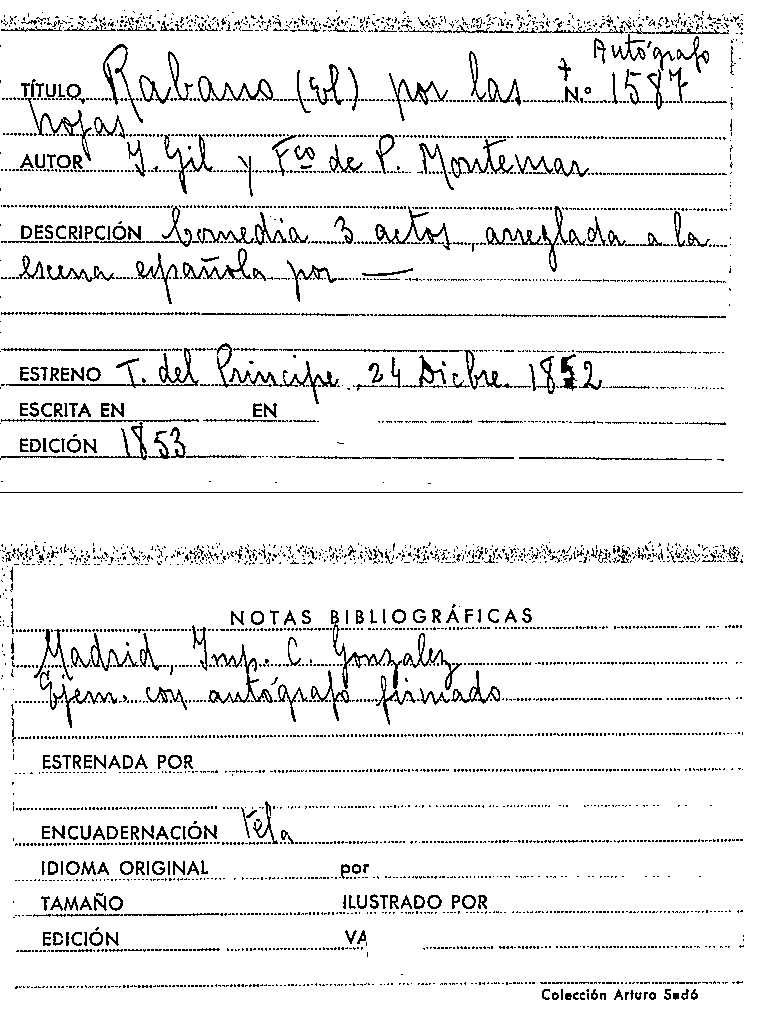 Autógrafo
TÍTULO Rabano (El) por las + N.º 1587
hojas
AUTOR I. Gil y Fco de P. Montemar
DESCRIPCIÓN Comedia 3 actos, arreglada a la
escena española por —
ESTRENO T. del Principe, 24 Dicbre. 1852
ESCRITA EN EN
EDICIÓN 1853
NOTAS BIBLIOGRÁFICAS
Madrid, Imp. C. Gonzalez
Ejem. con autógrafo firmado
ESTRENADA POR
ENCUADERNACIÓN Tela
IDIOMA ORIGINAL por
TAMAÑO ILUSTRADO POR
EDICIÓN VA
Colección Arturo Sedó